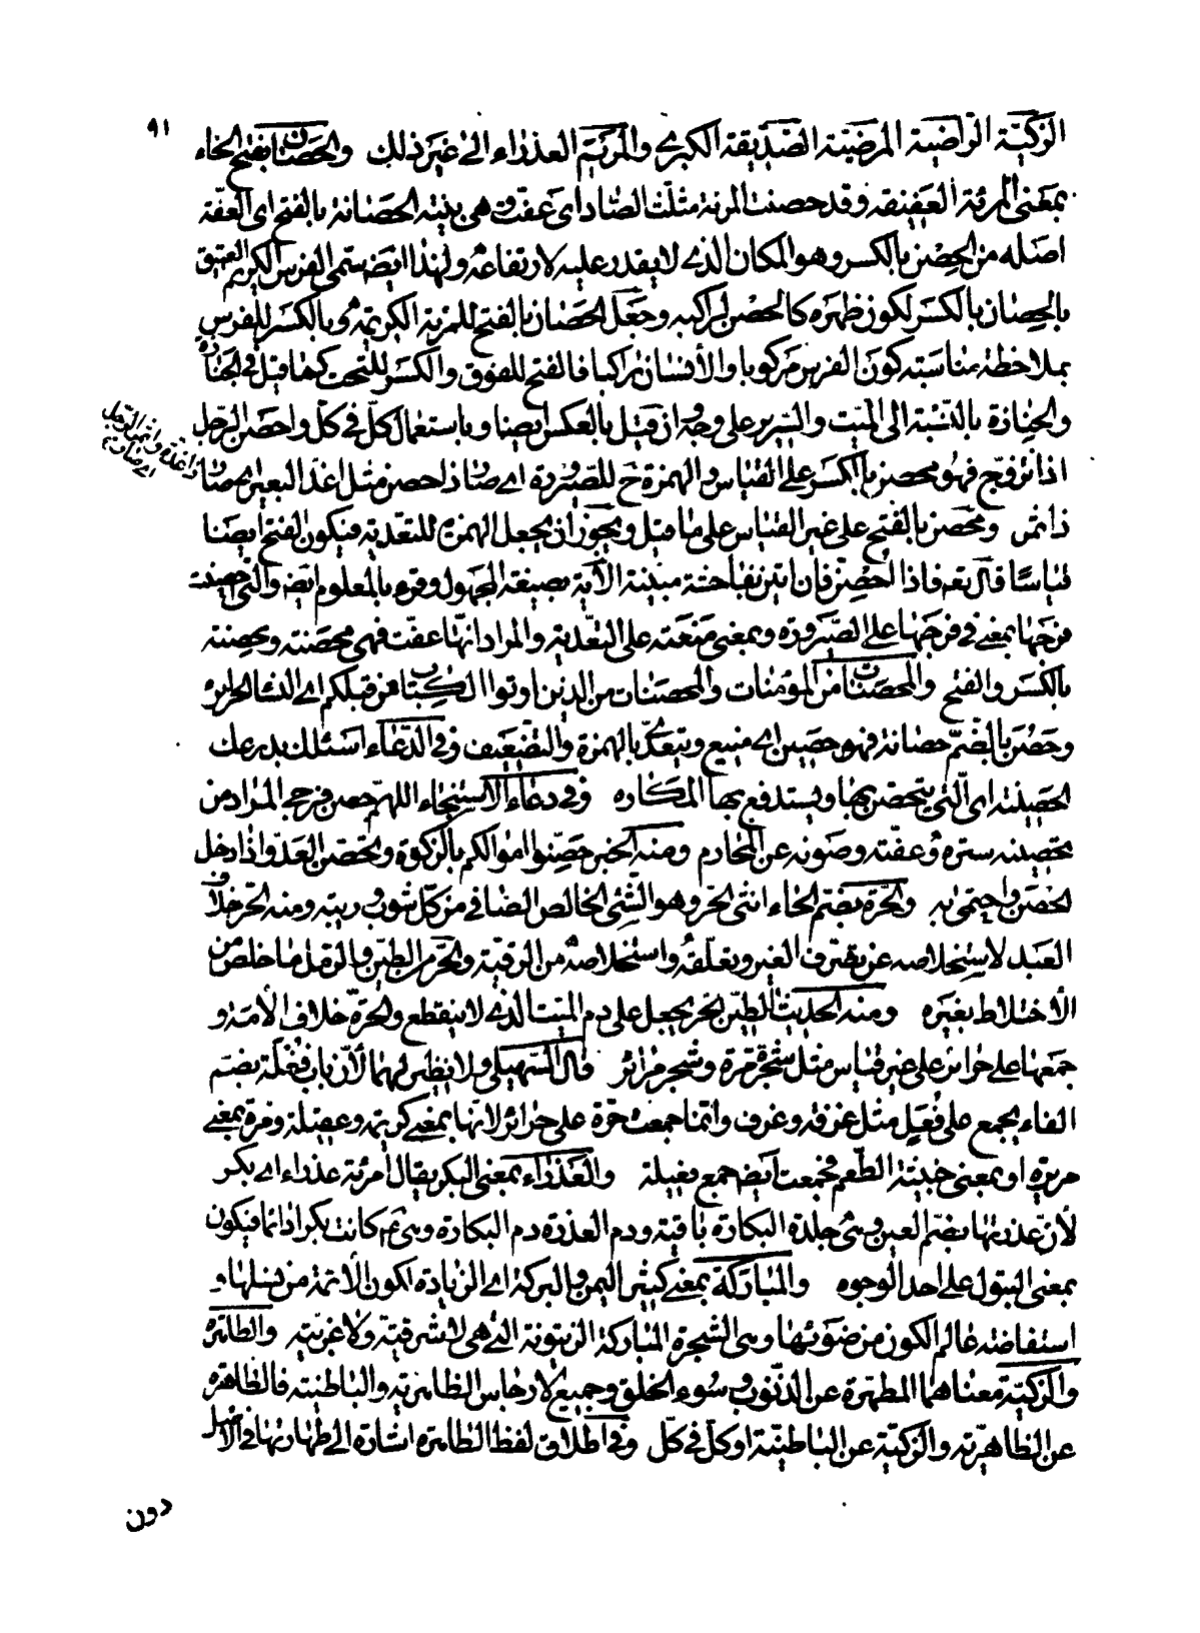 ٩١
الزكيّة الراضية المرضيّة الصّدّيقة الكبرى والمريم العذراء الى غير ذلك والحصان بفتح الحاء
بمعنى المرئة العفيفة وقد حصنت المرئة مثلّث الصّاد اى عفّت وهى بيّنة الحصانة بالفتح اى العفّة
اصله من الحصن بالكسر وهو المكان الذى لا يقدر عليه لارتفاعه ولهذا ايض سمّى الفرس الكريم العتيق
بالحصان بالكسر لكون ظهره كالحصن لراكبه وجعل الحصان بالفتح للمرئة الكريمة وبالكسر للفرس
بملاحظة مناسبة كون الفرس مركوبا والأنسان راكبا فالفتح للفوق والكسر للتحت كما قيل فى الجنازة
والجنازة بالنّسبة الى الميّت والسّرير على وجه وان قيل بالعكس ايضا وباستعمال كلّ فى كلّ واحصن الرجل
اذا تزوّج فهو محصن بالكسر على القياس والهمزة ح للصّيرورة اى صار ذا حصن مثل اغدّ البعير اى صار
ذا غدّة واتمر الرّجل اى صار
ذا تمر ومحصن بالفتح على غير القياس على ما قيل ويجوز ان يجعل الهمزة للتعدية فيكون الفتح ايضا
قياسًا قال تعه فاذا اُحصنّ فان اتين بفاحشة مبيّنة الآية بصيغة المجهول وقرء بالمعلوم ايض والّتى احصنت
فرجها بمعنى فى فرجها على الصّيرورة وبمعنى منعته على التّعدية والمراد انّها عفّت فهى محصنة ومحصنة
بالكسر والفتح والمحصنات من المؤمنات والمحصنات من الذين اوتوا الكتاب من قبلكم اى النساء الحراير
وحصُن بالضّمّ حصانة فهو حصين اى منيع ويتعدّى بالهمزة والتّضعيف وفى الدّعاء اسئلك بدرعك
الحصينة اى الّتى يتحصّن بها ويستدفع بها المكاره وفى دعاء الاستنجاء اللهمّ حصّن فرجى المراد من
تحصينه ستره وعفّته وصونه عن المحارم ومنه الخبر حصّنوا اموالكم بالزكوة وتحصّن العدوّ اذا دخل
الحصن واحتمى به والحرّة بضمّ الحاء انثى الحرّ وهو الشّئ الخالص الصّافى من كلّ شوب وريبة ومنه الحرّ خلاف
العبد لاستخلاصه عن تصرّف الغير وتعلّقه واستخلاصه من الرقيّة والحرّ من الطّين والرّمل ما خلص من
الأختلاط بغيره ومنه الحديث الطّين الحرّ يجعل على دم الميّت الّذى لا ينقطع والحرّة خلاف الأمة و
جمعها على حرائر على غير قياس مثل شجرة مرّة وشجر مرائر قال السّهيلى ولا نظير لهما لأنّ باب فُعلة بضمّ
الفاء يجمع على فُعَل مثل غرفة وغرف وانّما جمعت حرّة على حرائر لانّها بمعنى كريمة وعقيلة ومرّة بمعنى
مريرة او بمعنى خبيثة الطّعم فجمعت ايض جمع فعيلة والعذراء بمعنى البكر يقال امرئة عذراء اى بكر
لأنّ عذرتها بضمّ العين وهى جلدة البكارة باقية ودم العذرة دم البكارة وهى ع كانت بكرا دائما فيكون
بمعنى البتول على احد الوجوه والمباركة بمعنى كثير اليمن والبركة اى الزّيادة لكون الأئمّة من نسلها و
استفاضة عالم الكون من ضوئها وهى الشجرة المباركة الزيتونة الّتى هى لا شرقيّة ولا غربيّة والطاهرة
والزكيّة معناهما المطهّرة عن الذّنوب وسوء الخلق وجميع الارجاس الظاهريّة والباطنيّة فالطاهرة
عن الظاهريّة والزكيّة عن الباطنيّة او كلّ فى كلّ وفى اطلاق لفظ الطاهرة اشارة الى طهارتها فى الأصل
دون